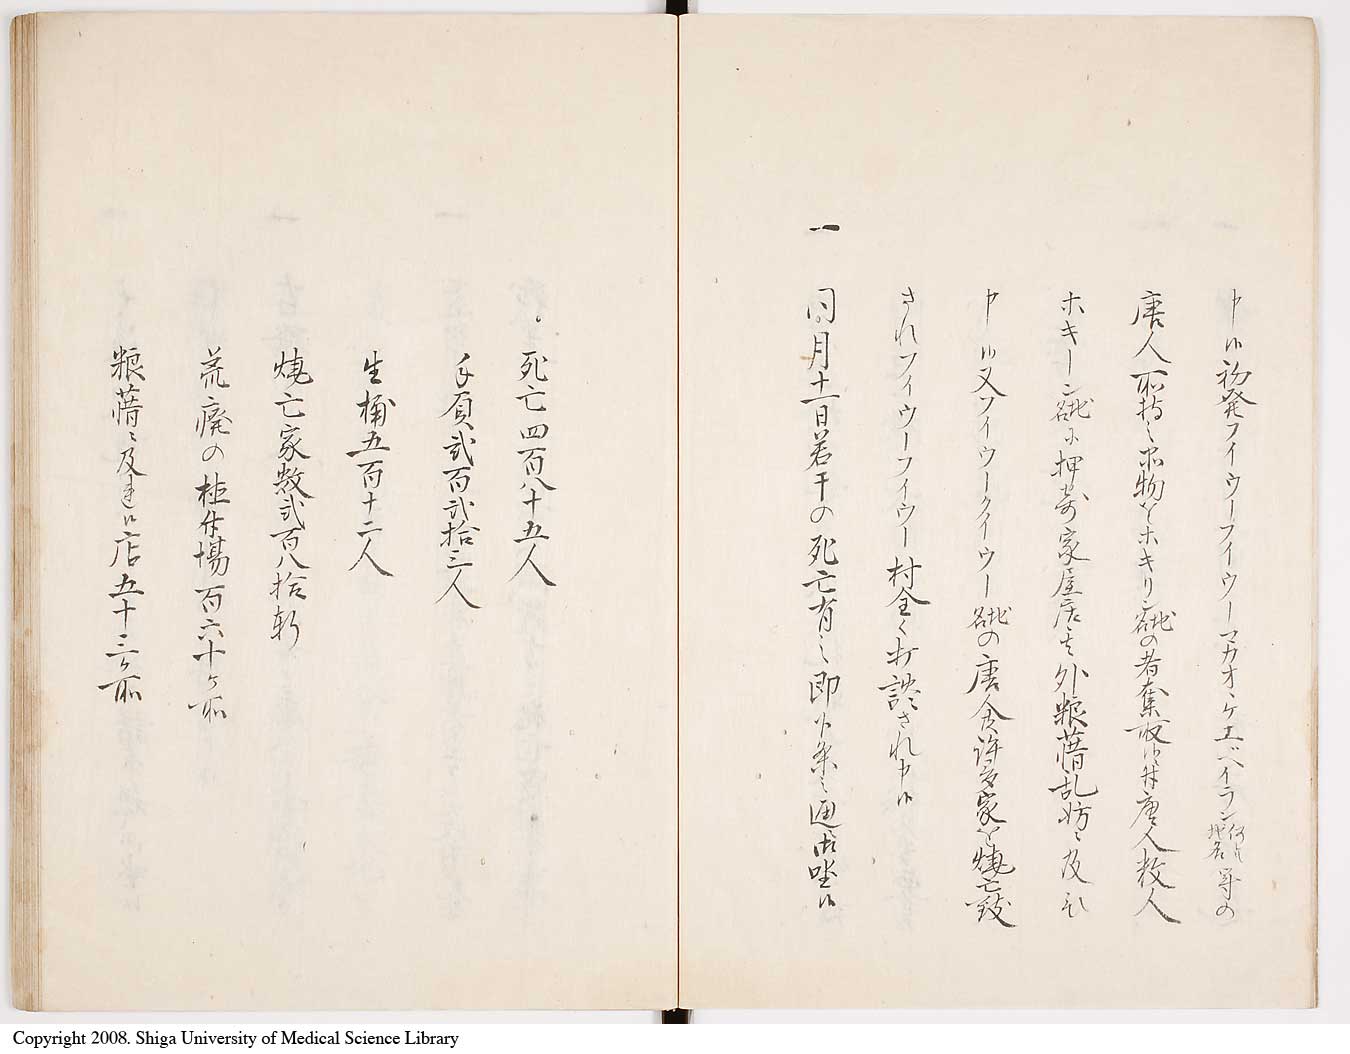 申候初発フイウーフイウーマカオンケエベイラン何れも地名等の
唐人所持之品物をホキリン地名の者奪取候并唐人数人
ホキーン地名に押寄家屋居も外粮藉乱妨に及ひ
申候又フイウークイウー地名の唐舎許多家を焼亡致
されフイウーフイウー村全く打潰され申候
一 同月十一日若干の死亡有之即下条之通御坐候
死亡四百八十五人
手負弐百弐拾三人
生捕五百十二人
焼亡家数弐百八拾軒
荒廃の植付場百六十ケ所
粮藉に及達候店五十三ケ所
Copyright 2008. Shiga University of Medical Science Library